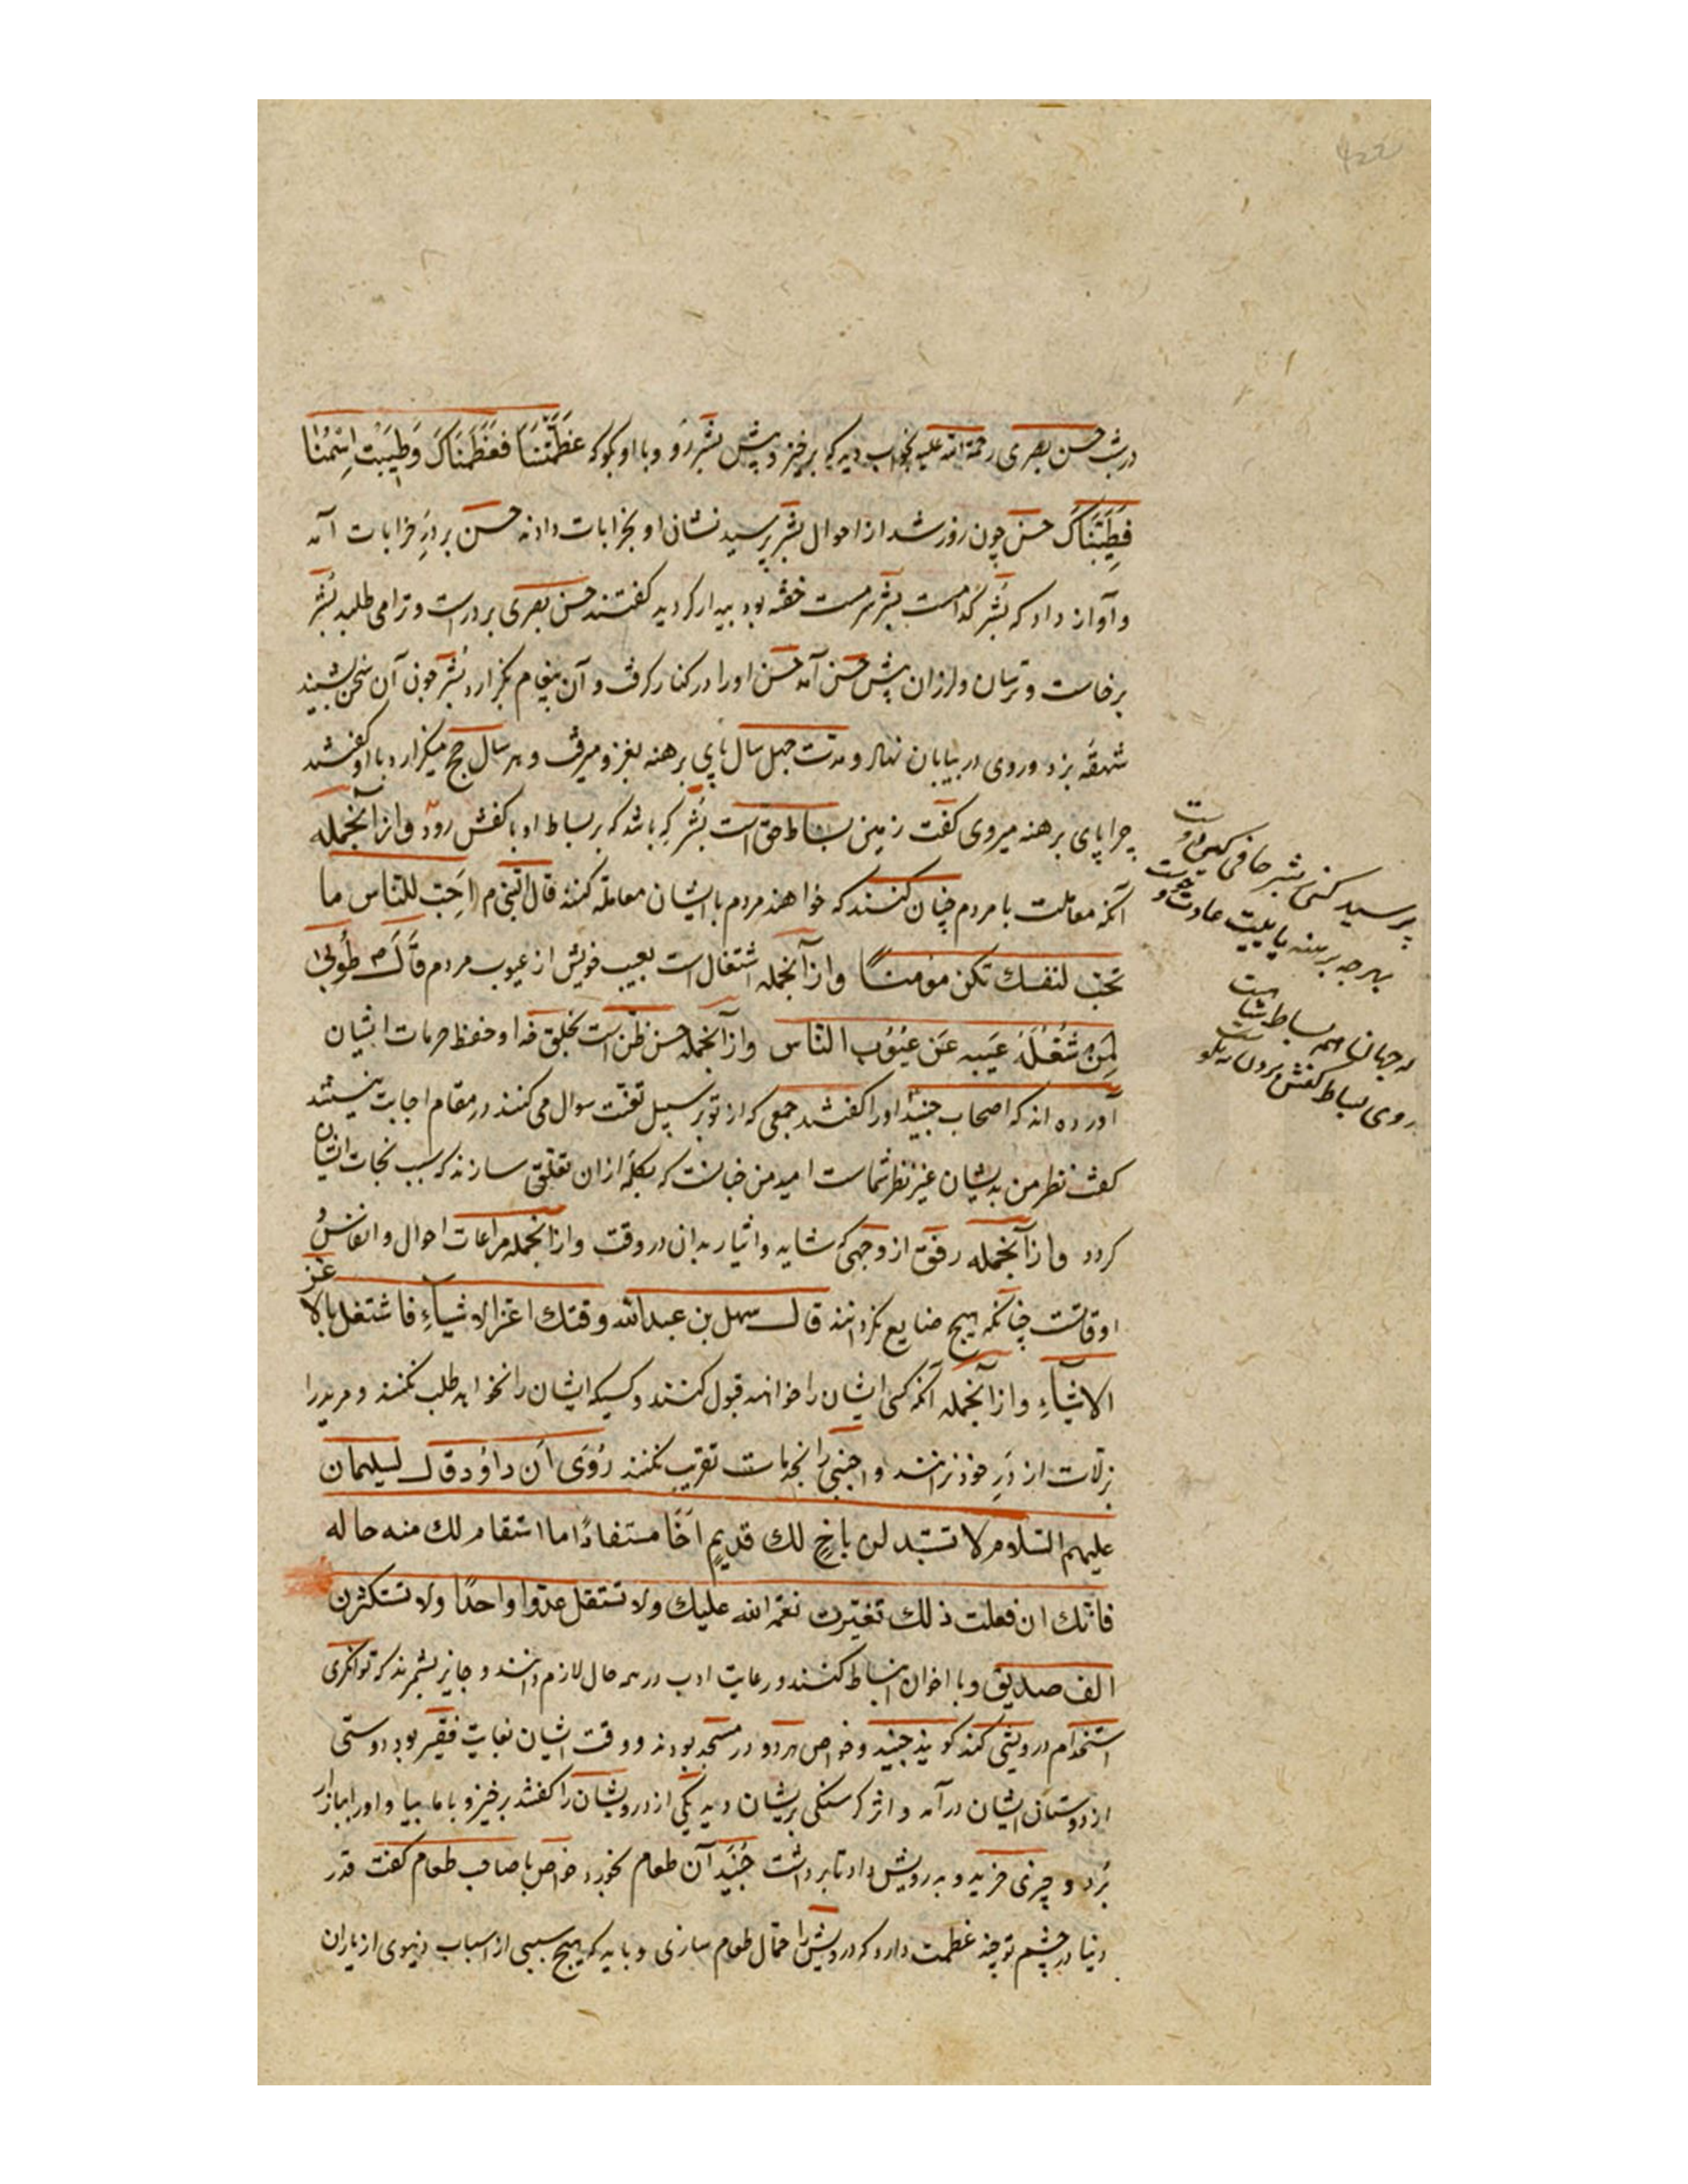 در شب حسن بصری رحمة الله علیه بخواب دید که برخیز و پیش بشر رو و با او بگو که عَظَّمْتَنَا فَعَظَّمْنَاكَ وَطَيَّبْتَ اِسْمَنَا
فَطَيَّبْنَاكَ حسن چون روز شد از احوال بشر پرسید نشان او بخرابات دادند حسن بر درِ خرابات آمد
و آواز داد که بشر کدامست بشر سرمست خفته بود بیدار کردید گفتند حسن بصری بر درست و ترا می طلبد بشر
برخاست و ترسان و لرزان پیش حسن آمد حسن او را در کنار گرفت و آن پیغام بگزارد بشر چون آن سخن بشنید
شهقهٔ بزد و روی در بیابان نهاد و مدت چهل سال پای برهنه بغزو میرفت و هر سال حج میگزارد با او گفتند
چرا پای برهنه میروی گفت زمین بساط حق است بشر که باشد که بر بساط او با کفش رود و از آنجمله
آنکه معاملت با مردم چنان کنند که خواهند مردم با ایشان معامله کنند قال النبی م اَحِبّ للناس ما
تحبّ لنفسك تکن مؤمنًا و از آنجمله اشتغال است بعیب خویش از عیوب مردم قَالَ م طُوبٰی
لِمَنْ شَغَلَهُ عَيبه عَن عُيُوب الناس و از آنجمله حسن ظن است بخلق خدا و حفظ حرمات ایشان
آورده اند که اصحاب جنید او را گفتند جمعی که از تو بر سبیل تعنت سوال می کنند در مقام اجابت نیستند
گفت نظر من بدیشان غیر نظر شماست امید من چنانست که بکلمهٔ از ان تعلق سازند که سبب نجات ایشان
گردد و از آنجمله رفق از وجهی که شاید و ایثار بدان در وقت و از آنجمله مراعات احوال و انفاس و
اوقاتست چنانکه هیچ ضایع نگردانند قال سهل بن عبدالله وقتك اعز الاشیاءِ فاشتغل بالاعز
الاشیاءِ و از آنجمله آنکه کسی ایشان را خواند قبول کنند و کسیکه ایشان را نخواند طلب نکنند و مرید را
بزلات از درِ خود نرانند و اجنبی را بخدمات تقریب نکنند رُوِیَ اَن داوُد قال لسلیمان
علیهم السلام لا تستبدلن باخٍ لك قدیمٍ اَخًا مستفادًا ما استقام لك منه حاله
فانّك ان فعلت ذلك تغیّرت نعمة الله علیك ولا تستقل عدوا واحدًا ولا تستکثرن
الف صدیق و با اخوان انبساط کنند و رعایت ادب در همه حال لازم دانند و جایز نشمرند که توانکری
استخدام درویشی کند گویند جنید و خواص هردو در مسجد بودند و وقت ایشان بغایت فقیر بود دوستی
از دوستان ایشان درآمد و اثر گرسنگی بریشان دید یکی از درویشان را گفتند برخیز و با ما بیا و او را ببازار
بُرد و چیزی خرید و به درویش داد تا برداشت جُنَید آن طعام نخورد خواص با صاحب طعام گفت قدر
دنیا در چشم تو چند عظمت دارد که درویش را حمّال طعام سازی و باید که هیچ سببی از اسباب دنیوی از یاران
پرسید کسی بشر حافی
بهر چه برهنه پاییت عادت و
جهان همه بساط
روی بساط کفش بردن نه نکو